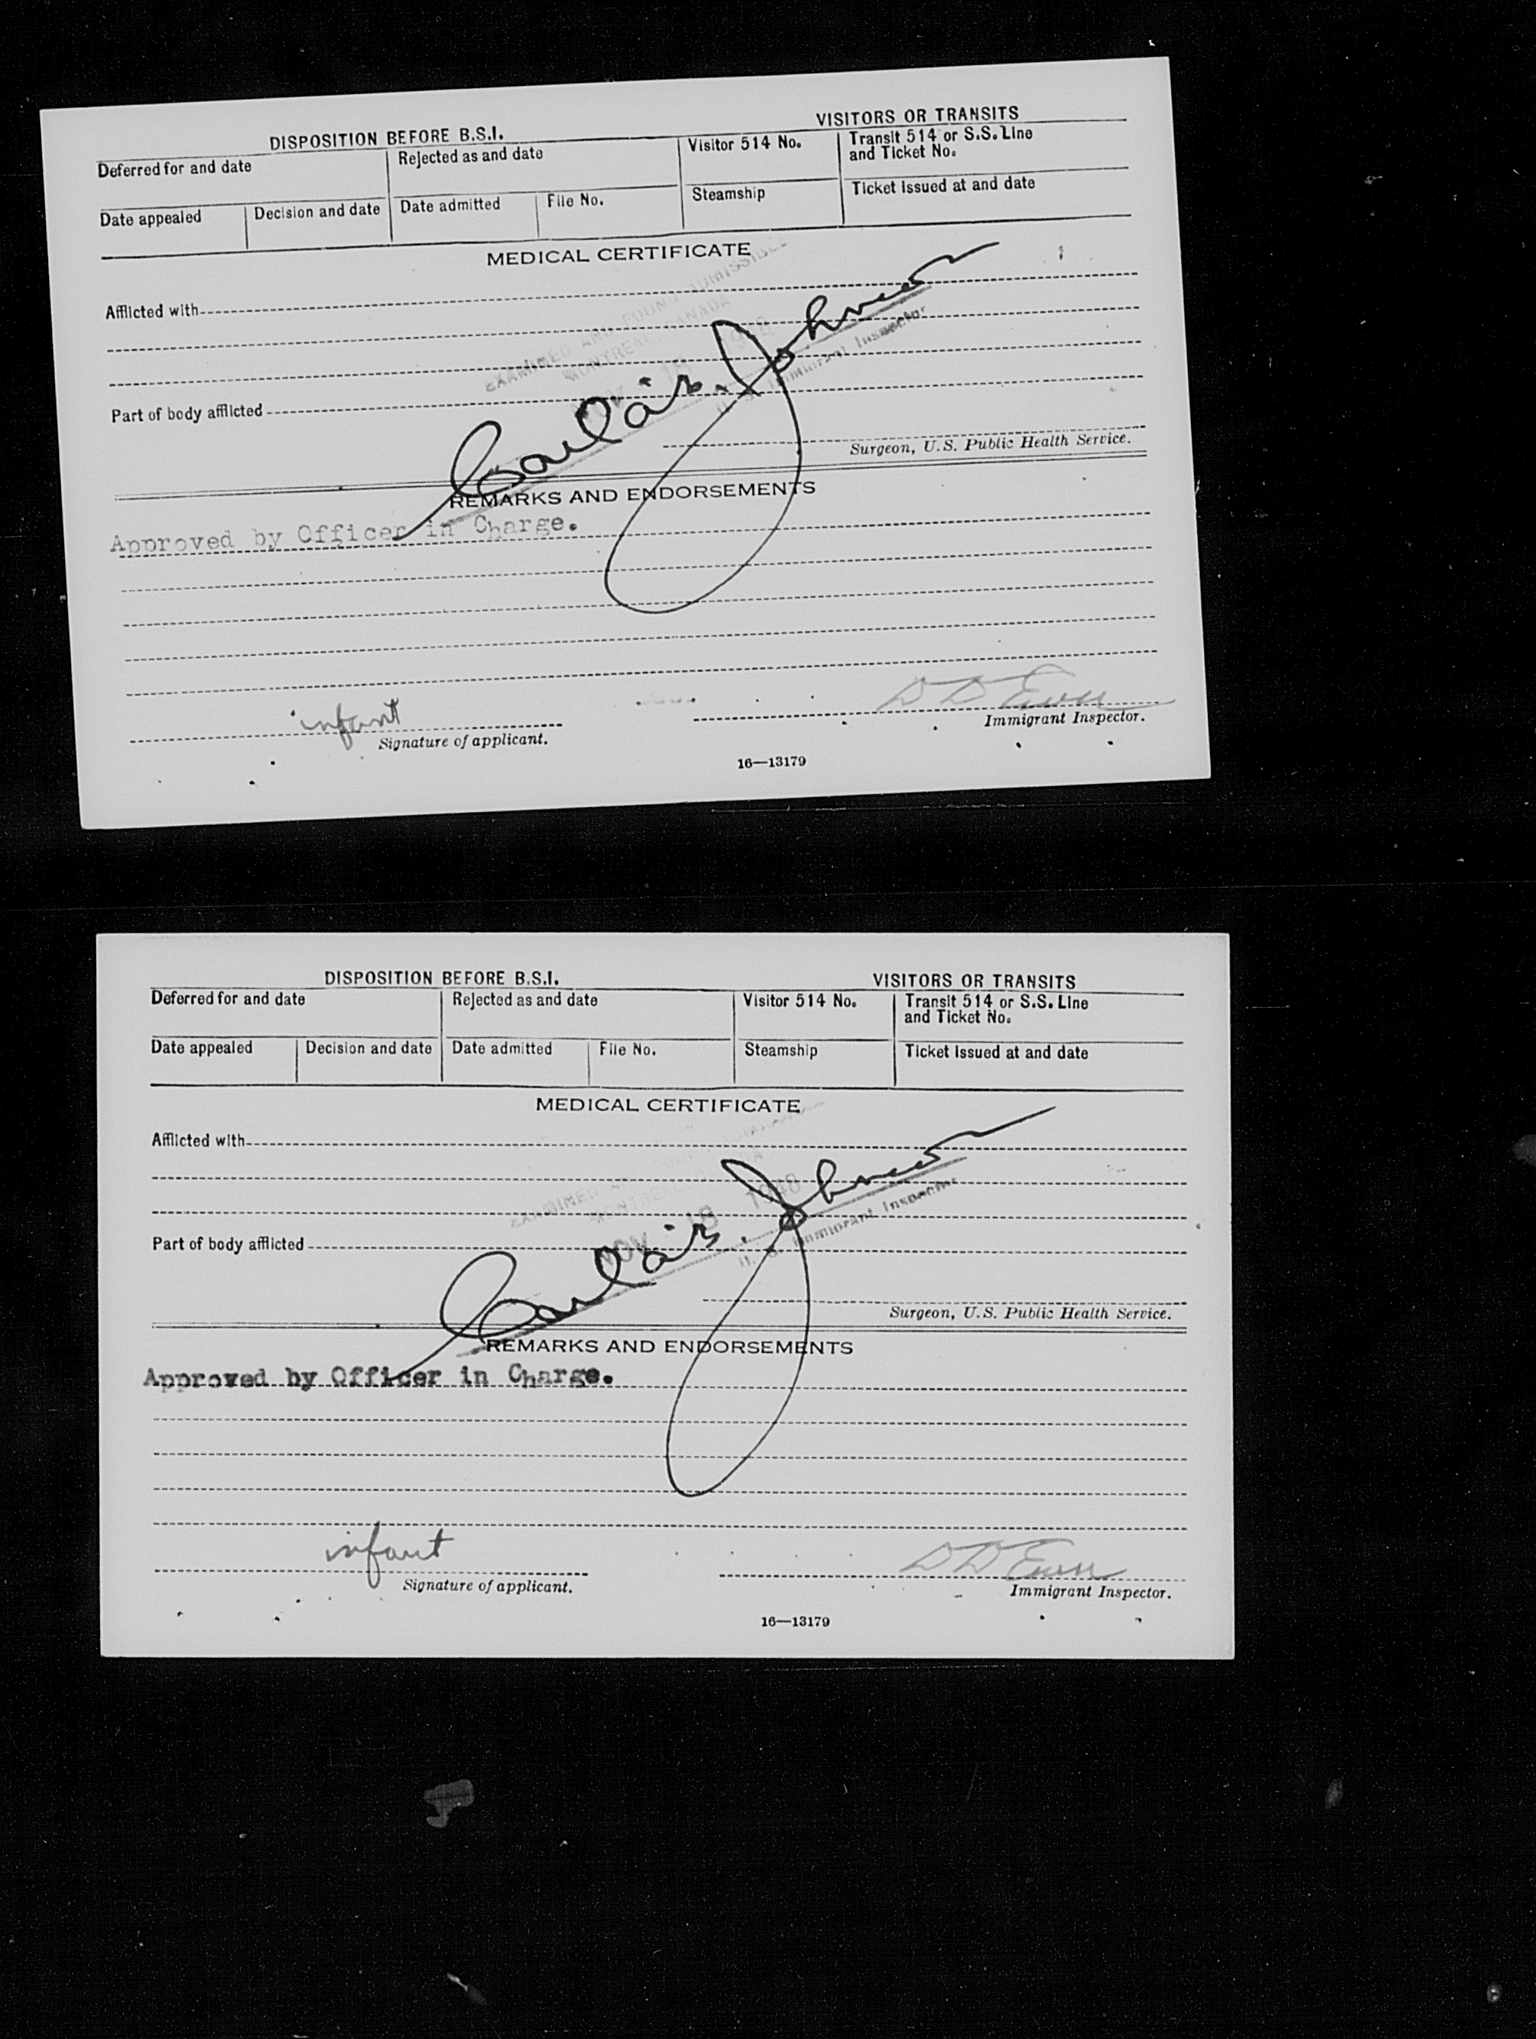 DISPOSITION BEFORE B.S.I.
VISITORS OR TRANSITS
Deferred for and date
Rejected as and date
Visitor 514 No.
Transit 514 or S.S. Line
and Ticket No.
Date appealed
Decision and date
Date admitted
File No.
Steamship
Ticket issued at and date
MEDICAL CERTIFICATE
Afflicted with
EXAMINED AND FOUND ADMISSIBLE
MONTREAL CANADA
18
Johnson
Immigrant Inspector
Part of body afflicted
Surgeon, U.S. Public Health Service.
REMARKS AND ENDORSEMENTS
Approved by Officer in Charge.
infant
Signature of applicant.
D D
Immigrant Inspector.
16—13179
DISPOSITION BEFORE B.S.I.
VISITORS OR TRANSITS
Deferred for and date
Rejected as and date
Visitor 514 No.
Transit 514 or S.S. Line
and Ticket No.
Date appealed
Decision and date
Date admitted
File No.
Steamship
Ticket issued at and date
MEDICAL CERTIFICATE
Afflicted with
EXAMINED
NOV 18 1948
Johnson
U. S. Immigrant Inspector
Part of body afflicted
Surgeon, U.S. Public Health Service.
REMARKS AND ENDORSEMENTS
Approved by Officer in Charge.
infant
Signature of applicant.
D D
Immigrant Inspector.
16—13179